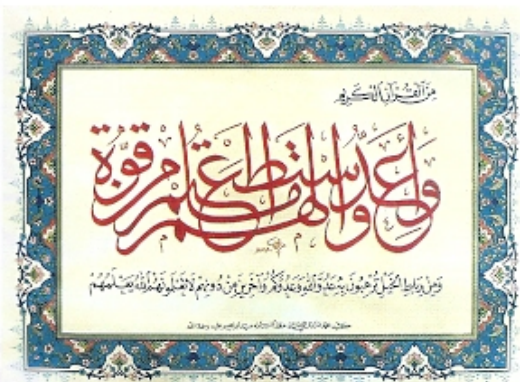 من القرآن الكريم
وَأَعِدُّوا لَهُم مَّا اسْتَطَعْتُم مِّن قُوَّةٍ
وَمِنْ رِبَاطِ الْخَيْلِ تُرْهِبُونَ بِهِ عَدُوَّ اللهِ وَعَدُوَّكُمْ وَآخَرِينَ مِنْ دُونِهِمْ لَا تَعْلَمُونَهُمُ اللهُ يَعْلَمُهُمْ